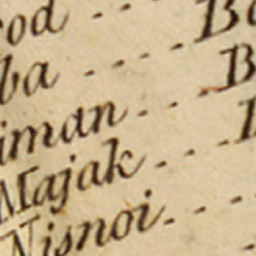 od - - - B
ba - - - - B
iman - - - B
Majak - - -
Nisnoi - - -